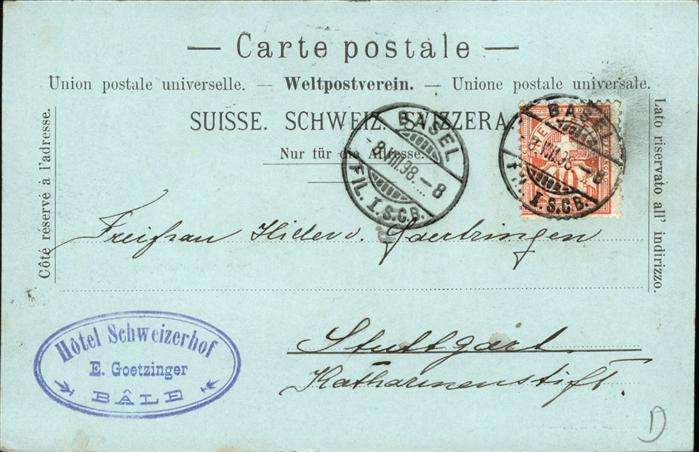 — Carte postale —
Union postale universelle. — Weltpostverein. — Unione postale universale.
SUISSE. SCHWEIZ. SVIZZERA.
Nur für die Adresse.
Côté réservé à l'adresse.
Lato riservato all' indirizzo.
BASEL
-8.VIII.98.-8
FIL. I.S.C.B.
BASEL
-8.VIII.98.-8
FIL. I.S.C.B.
10
Freifrau Hiller v. Gaertringen
Stuttgart
Katharinenstift.
Hôtel Schweizerhof
E. Goetzinger
BÂLE
D